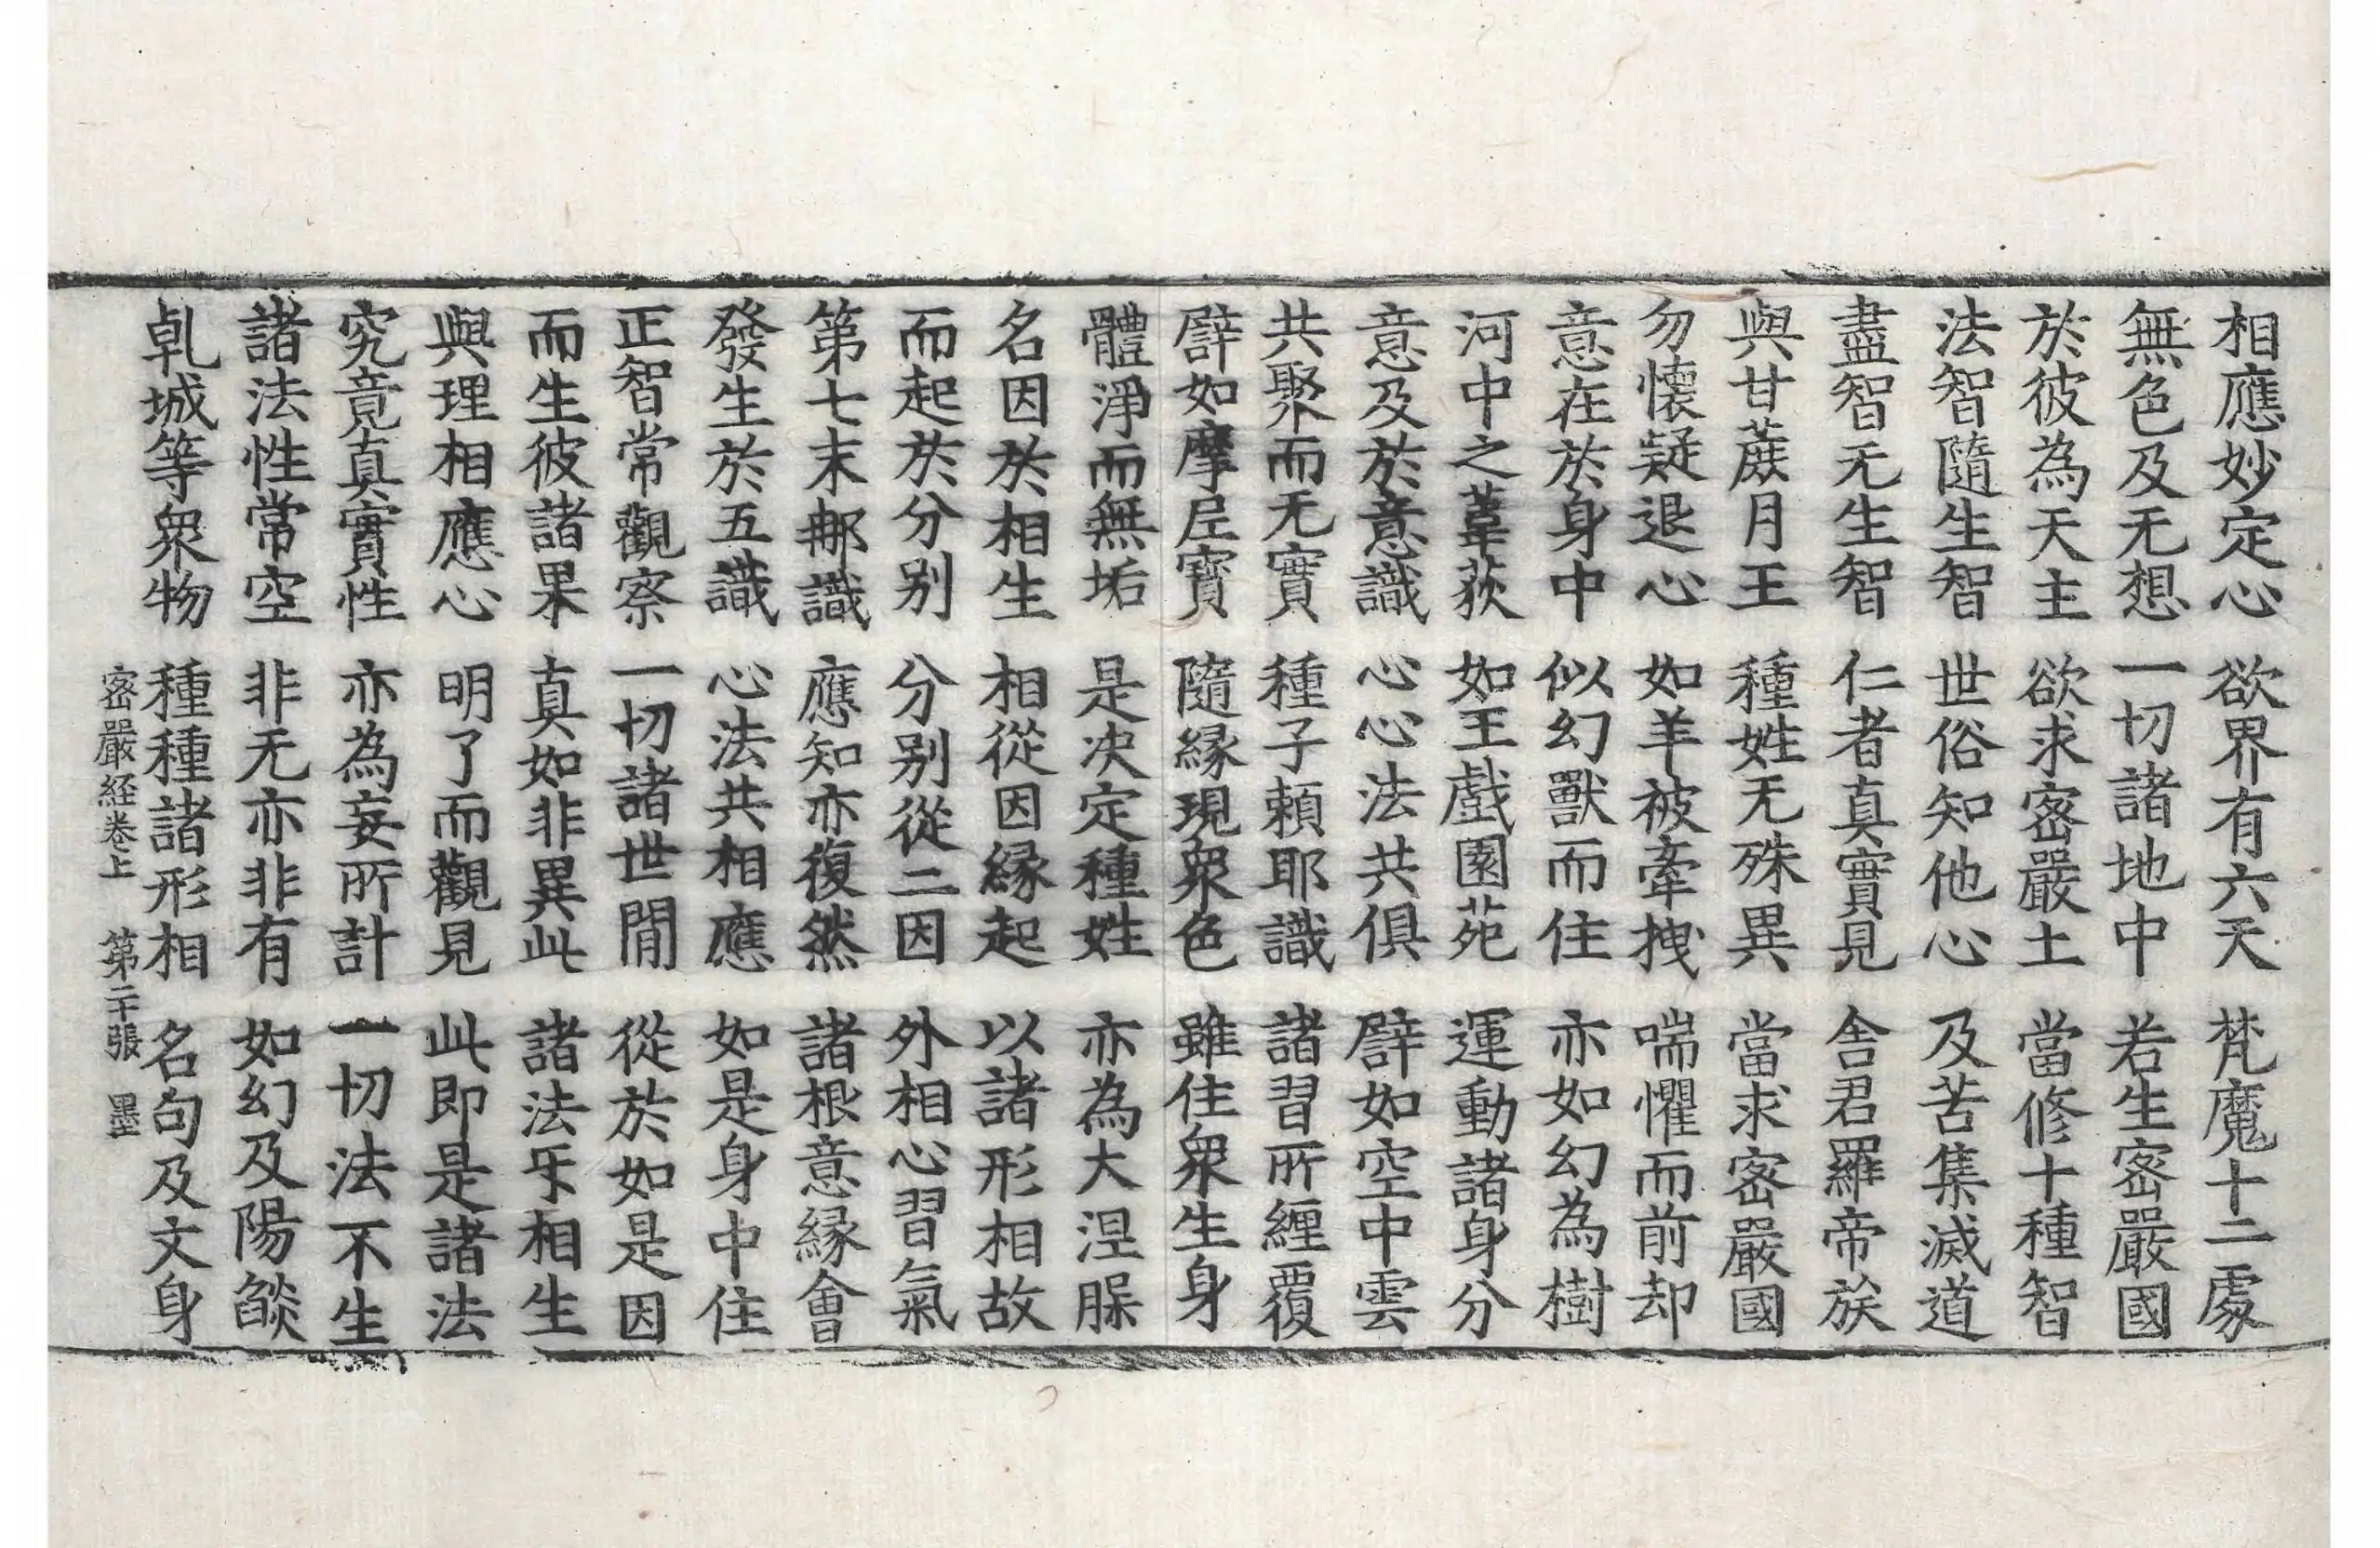 相應妙定心 欲界有六天 梵魔十二處
無色及无想 一切諸地中 若生密嚴國
於彼為天主 欲求密嚴土 當修十種智
法智隨生智 世俗知他心 及苦集滅道
盡智无生智 仁者真實見 舍君羅帝族
與甘蔗月王 種姓无殊異 當求密嚴國
勿懷疑退心 如羊被牽拽 喘懼而前却
意在於身中 似幻獸而住 亦如幻為樹
河中之葦荻 如王戲園苑 運動諸身分
意及於意識 心心法共俱 譬如空中雲
共聚而无實 種子賴耶識 諸習所纏覆
譬如摩尼寶 隨緣現衆色 雖住衆生身
體淨而無垢 是决定種姓 亦為大涅脲
名因於相生 相從因緣起 以諸形相故
而起於分别 分别從二因 外相心習氣
第七末那識 應知亦復然 諸根意緣會
發生於五識 心法共相應 如是身中住
正智常觀察 一切諸世間 從於如是因
而生彼諸果 真如非異此 諸法㸦相生
與理相應心 明了而觀見 此即是諸法
究竟真實性 亦為妄所計 一切法不生
諸法性常空 非无亦非有 如幻及陽燄
乹城等衆物 種種諸形相 名句及文身
密嚴経卷上 第二十張 墨